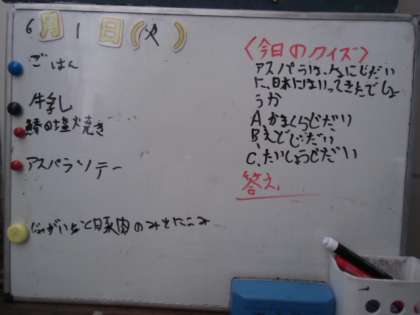 6月1日(火)
ごはん
牛乳
鰆の塩焼き
アスパラソテー
じゃがいもと豚肉のみそにこみ
〈今日のクイズ〉
アスパラは、なにじだい
に、日本にはいってきたでしょ
うか
A、かまくらじだい
B、えどじだい
C、たいしょうじだい
答え、